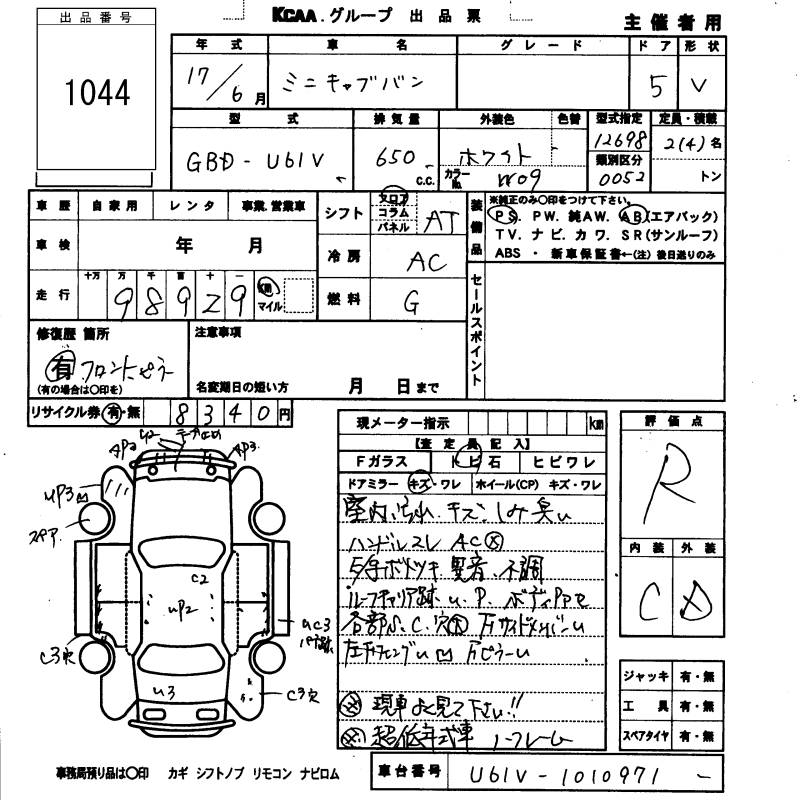 KCAA.グループ 出品票
主催者用
出品番号
1044
年式 車名 グレード ドア 形状
17/6月 ミニキャブバン 5 V
型式 排気量 外装色 色替 型式指定 定員・積載
GBD-U61V 650 c.c. ホワイト 12698 2(4)名
カラーNo. W09 類別区分 0052 トン
車歴 自家用 レンタ 事業.営業車
シフト フロア コラム パネル AT
装備品 ※純正のみ〇印をつけて下さい。
PS. PW. 純AW. AB(エアバック)
TV. ナビ. カワ. SR(サンルーフ)
ABS ・ 新車保証書←(注) 後日送りのみ
車検 年 月
冷房 AC
走行 十万 万 千 百 十 一
98929 km マイル
燃料 G
セールスポイント
修復歴 箇所
有 フロントピラー
(有の場合は〇印を)
注意事項
名変期日の短い方 月 日まで
リサイクル券 有・無 8340円
現メーター指示 km
【査定員記入】
Fガラス トビ石 ヒビワレ
ドアミラー キズ・ワレ ホイール(CP) キズ・ワレ
室内汚れ.キズ.しみ臭い
ハンドルスレ AC
異音.不調
ルーフキャリア跡.u.P.
各部
現車よく見て下さい!!
超低年式車 ノーフレーム
評価点
R
内装 外装
C D
ジャッキ 有・無
工具 有・無
スペアタイヤ 有・無
AP3
スペア
C2
UP2
C3穴
U3
C3穴
事務局預り品は〇印 カギ シフトノブ リモコン ナビロム
車台番号 U61V-1010971